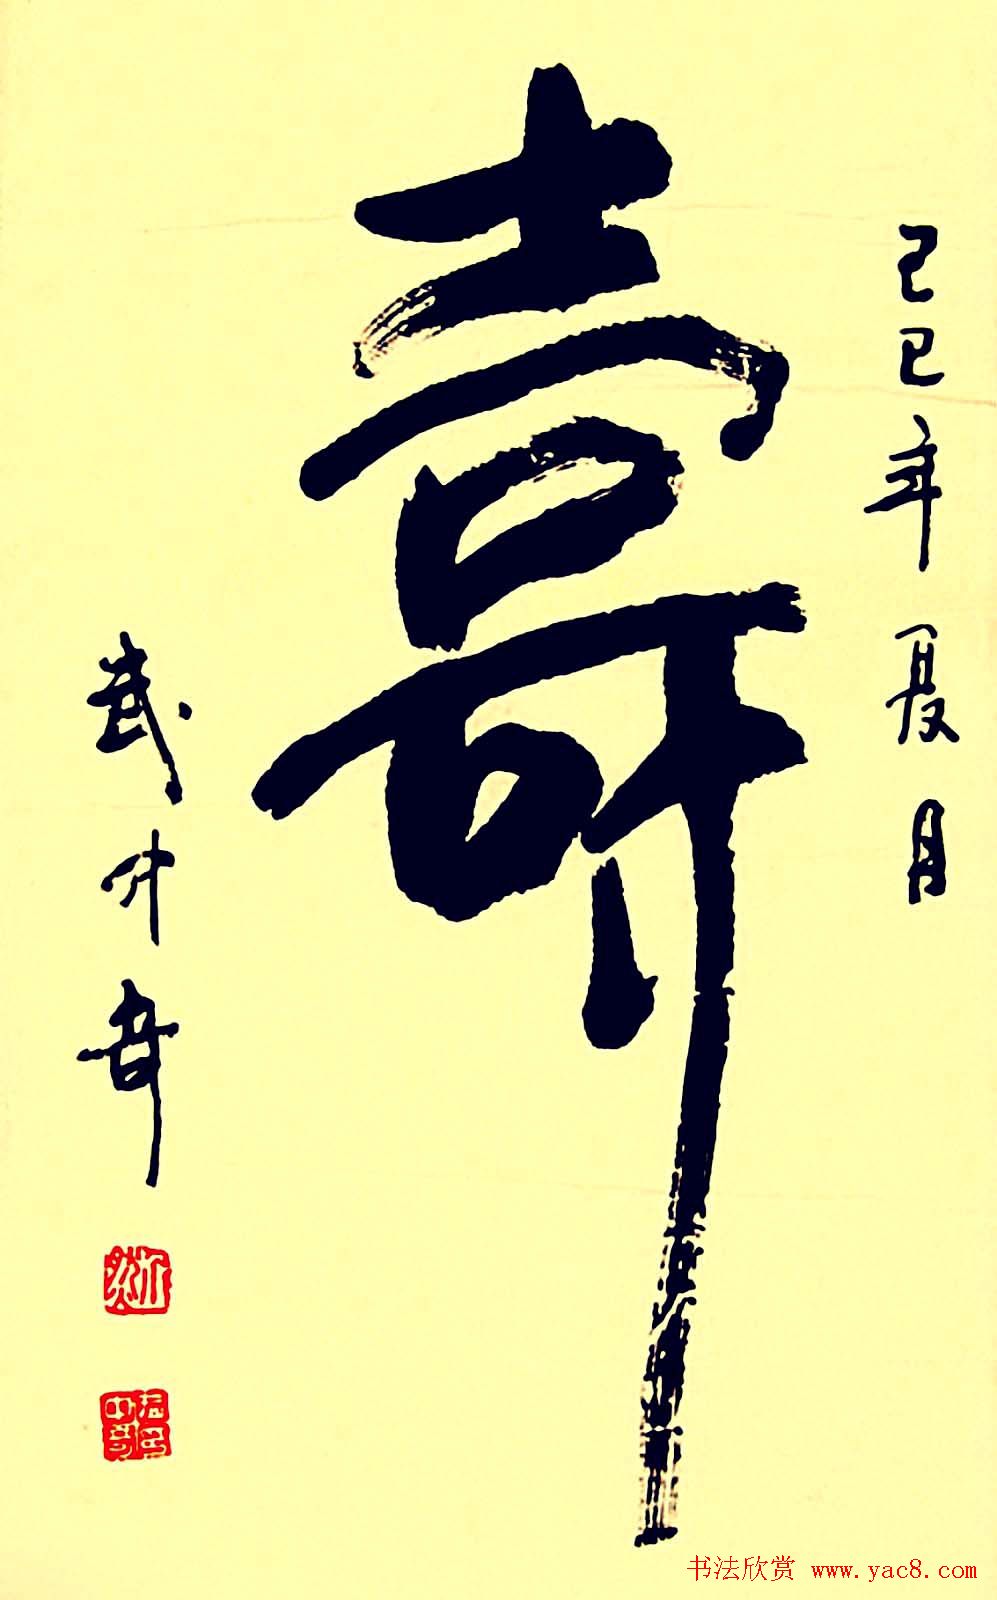 己巳年夏月
壽
武中奇
书法欣赏 www.yac8.com